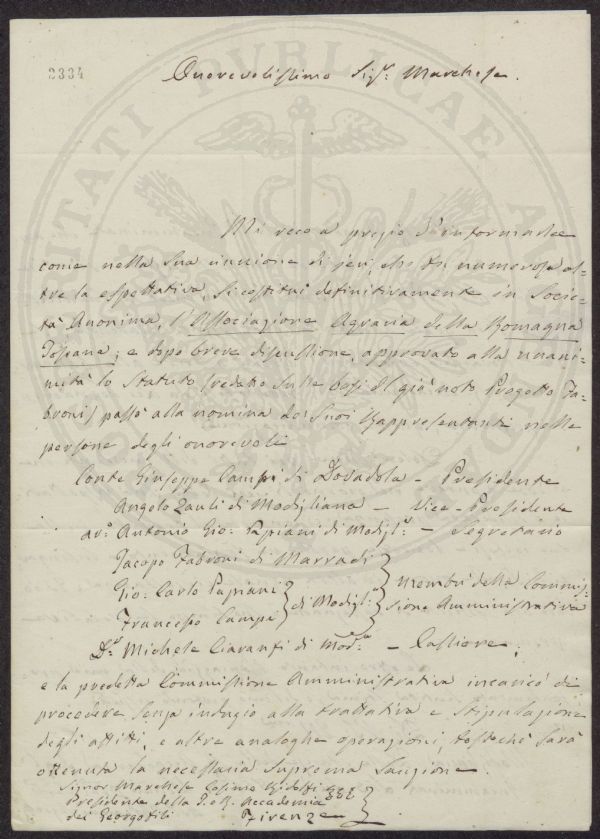 2334
Onorevolissimo Sigr. Marchese.
Mi reco a pregio d'informarla
come nella sua riunione di jeri, che fu numerosa ol-
tre la espettativa, si costituì definitivamente in Socie-
tà Anonima, l'Associazione Agraria della Romagna
Toscana; e dopo breve discussione, approvato alla unani-
mità lo Statuto (redatto sulle basi del già noto Progetto Fa-
broni) passò alla nomina dei suoi Rappresentanti nelle
persone degli onorevoli
Conte Giuseppe Campi di Dovadola - Presidente
Angelo Zauli di Modigliana - Vice-Presidente
avo. Antonio Gio: Papiani di Modigl.a - Segretario
Jacopo Fabroni di Marradi
Gio: Carlo Papiani
Francesco Campi
di Modigl:a
membri della Commis-
sione Amministrativa
Dr. Michele Ciaranfi di Mod.na - Cassiere;
e la predetta Commissione Amministrativa incaricò di
procedere senza indugio alla trattativa e stipulazione
degli affitti, e altre analoghe operazioni, tostochè sarà
ottenuta la necessaria Suprema Sanzione.
Signor Marchese Cosimo Ridolfi
Presidente della I. e R. Accademia
dei Georgofili Firenze
PVBLICAE